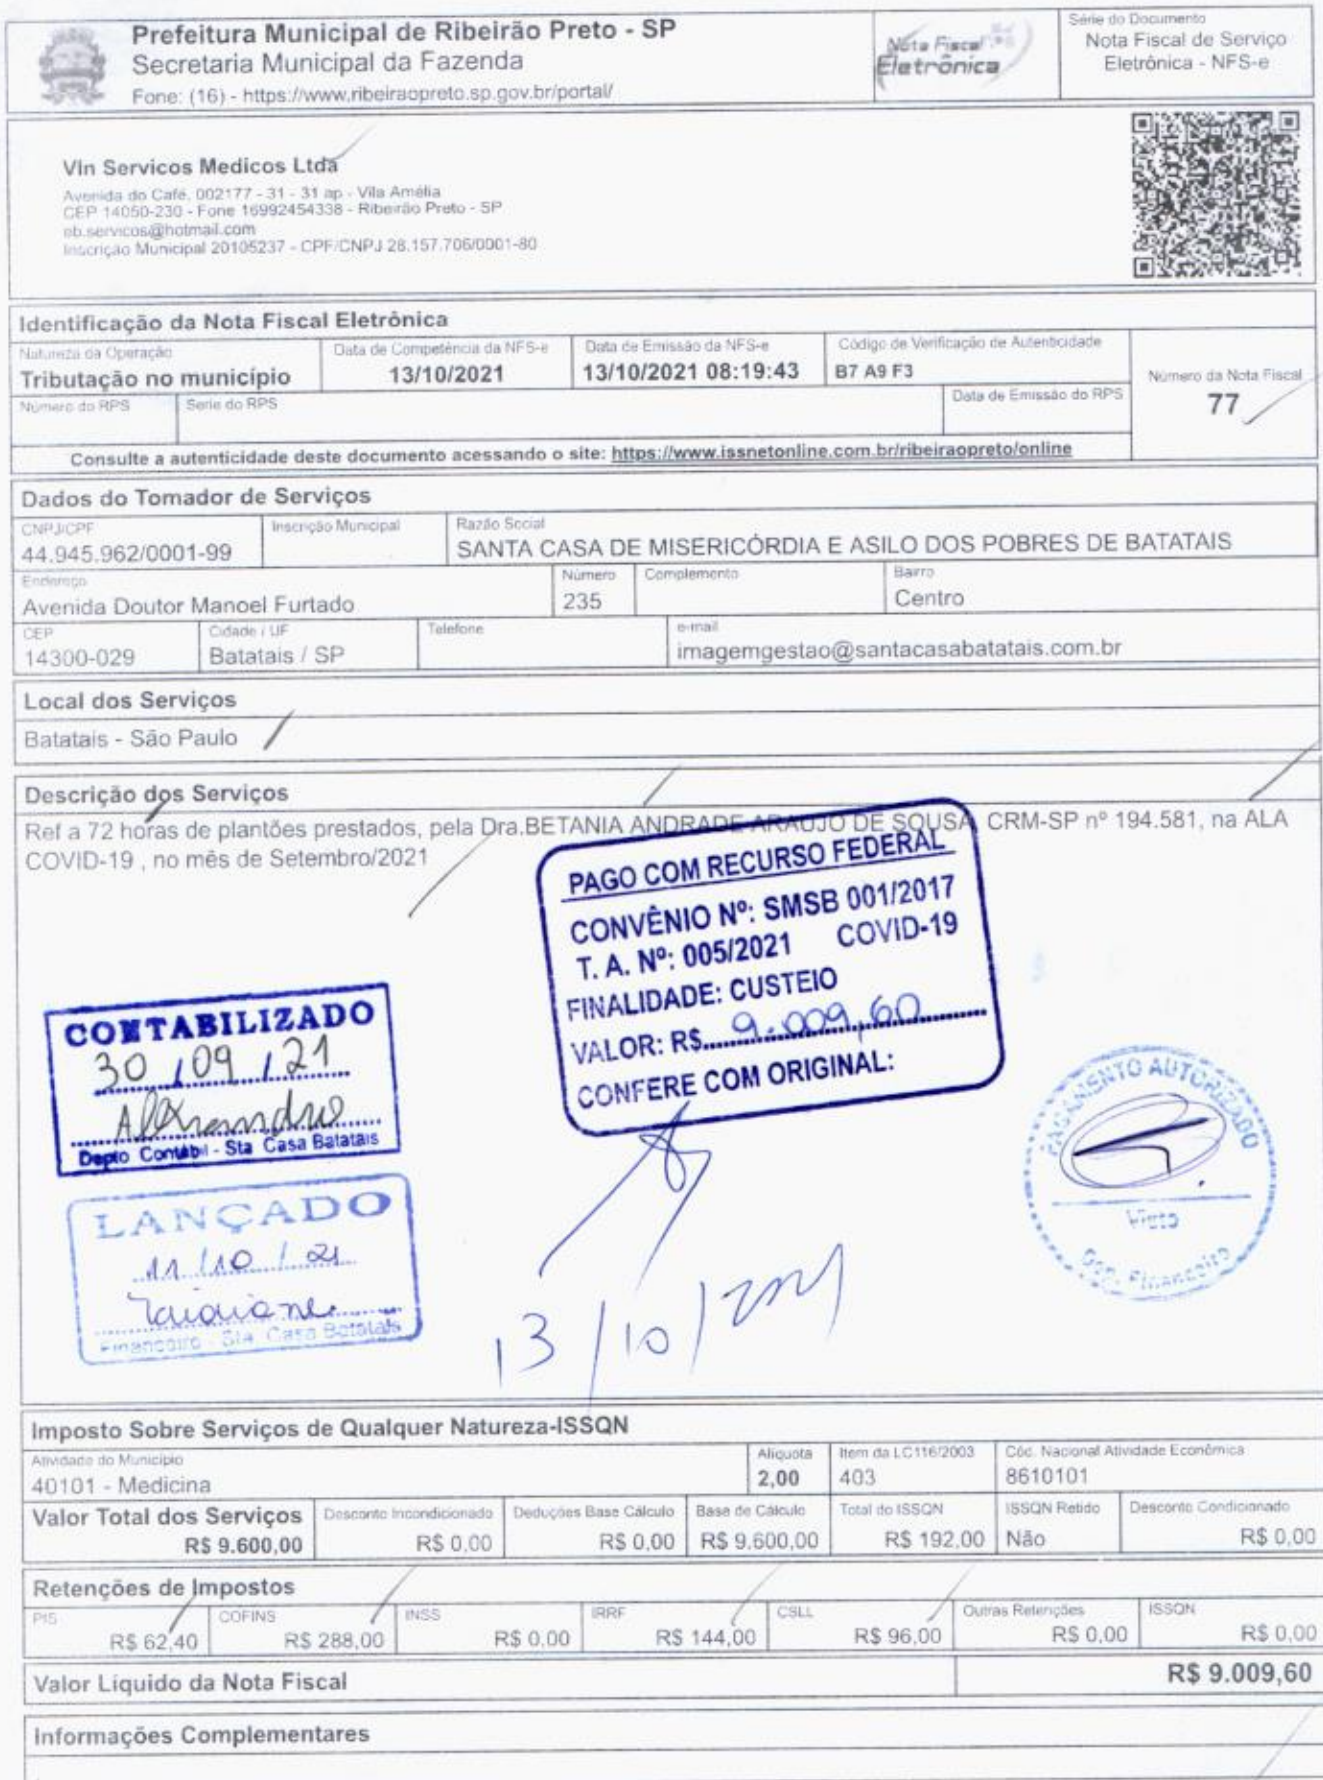 Prefeitura Municipal de Ribeirão Preto - SP
Secretaria Municipal da Fazenda
Fone: (16) - https://www.ribeiraopreto.sp.gov.br/portal/
Nota Fiscal
Eletrônica
Série do Documento
Nota Fiscal de Serviço
Eletrônica - NFS-e
Vln Servicos Medicos Ltda
Avenida do Café, 002177 - 31 - 31 ap - Vila Amélia
CEP 14050-230 - Fone 16992454338 - Ribeirão Preto - SP
eb.servicos@hotmail.com
Inscrição Municipal 20105237 - CPF/CNPJ 28.157.706/0001-80
Identificação da Nota Fiscal Eletrônica
Natureza da Operação
Tributação no município
Data de Competência da NFS-e
13/10/2021
Data de Emissão da NFS-e
13/10/2021 08:19:43
Código de Verificação de Autenticidade
B7 A9 F3
Número da Nota Fiscal
77
Número do RPS
Serie do RPS
Data de Emissão do RPS
Consulte a autenticidade deste documento acessando o site: https://www.issnetonline.com.br/ribeiraopreto/online
Dados do Tomador de Serviços
CNPJ/CPF
44.945.962/0001-99
Inscrição Municipal
Razão Social
SANTA CASA DE MISERICÓRDIA E ASILO DOS POBRES DE BATATAIS
Endereço
Avenida Doutor Manoel Furtado
Número
235
Complemento
Bairro
Centro
CEP
14300-029
Cidade / UF
Batatais / SP
Telefone
e-mail
imagemgestao@santacasabatatais.com.br
Local dos Serviços
Batatais - São Paulo
Descrição dos Serviços
Ref a 72 horas de plantões prestados, pela Dra.BETANIA ANDRADE ARAUJO DE SOUSA, CRM-SP nº 194.581, na ALA
COVID-19 , no mês de Setembro/2021
PAGO COM RECURSO FEDERAL
CONVÊNIO Nº: SMSB 001/2017
T. A. Nº: 005/2021 COVID-19
FINALIDADE: CUSTEIO
VALOR: R$ 9.009,60
CONFERE COM ORIGINAL:
CONTABILIZADO
30/09/21
Alexandre
Depto Contábil - Sta Casa Batatais
LANÇADO
11/10/21
Taiviane
Financeiro - Sta. Casa Batatais
PAGAMENTO AUTORIZADO
Visto
Financeiro
13/10/2021
Imposto Sobre Serviços de Qualquer Natureza-ISSQN
Atividade do Município
40101 - Medicina
Alíquota
2,00
Item da LC116/2003
403
Cód. Nacional Atividade Econômica
8610101
Valor Total dos Serviços
R$ 9.600,00
Desconto Incondicionado
R$ 0,00
Deduções Base Cálculo
R$ 0,00
Base de Cálculo
R$ 9.600,00
Total do ISSQN
R$ 192,00
ISSQN Retido
Não
Desconto Condicionado
R$ 0,00
Retenções de Impostos
PIS
R$ 62,40
COFINS
R$ 288,00
INSS
R$ 0,00
IRRF
R$ 144,00
CSLL
R$ 96,00
Outras Retenções
R$ 0,00
ISSQN
R$ 0,00
Valor Líquido da Nota Fiscal
R$ 9.009,60
Informações Complementares